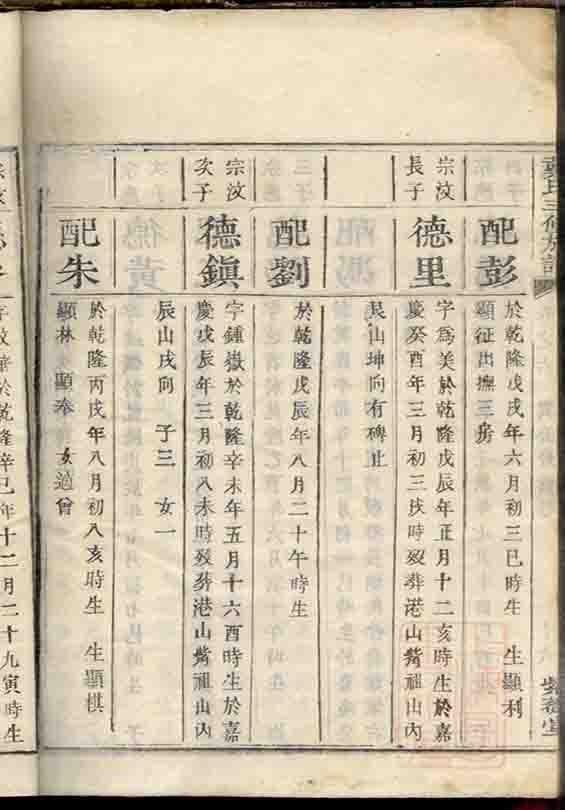 氏三修族譜
紫
配彭
於乾隆戊戌年六月初三巳時生 生顯利
顯征出撫三房
宗汶
長子
德里
字為美於乾隆戊辰年正月十二亥時生於嘉
慶癸酉年三月初三戌時歿葬港山觜祖山內
艮山坤向有碑止
配劉
於乾隆戊辰年八月二十午時生
宗汶
次子
德鎮
字鍾嶽於乾隆辛未年五月十六酉時生於嘉
慶戊辰年三月初八未時歿葬港山觜祖山內
辰山戌向 子三 女一
配朱
於乾隆丙戌年八月初八亥時生 生顯棋
顯林 顯奉 女適曾
於乾隆辛巳年十二月二十九寅時生